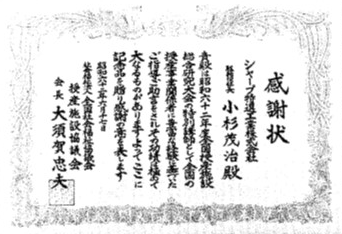 感謝状
シャープ精工業株式会社
小杉茂治殿
貴殿は昭和六十二年度全国授産施設
総合研究大会の特別講師として全国の
授産事業関係者に豊富な経験に基づく
ご指導ご助言をされその功績は極めて
大なるものがありますよってここに
記念品を贈り感謝の意を表します
昭和六十二年六月十七日
社会福祉法人全国社会福祉協議会
授産施設協議会
会長 大須賀忠夫